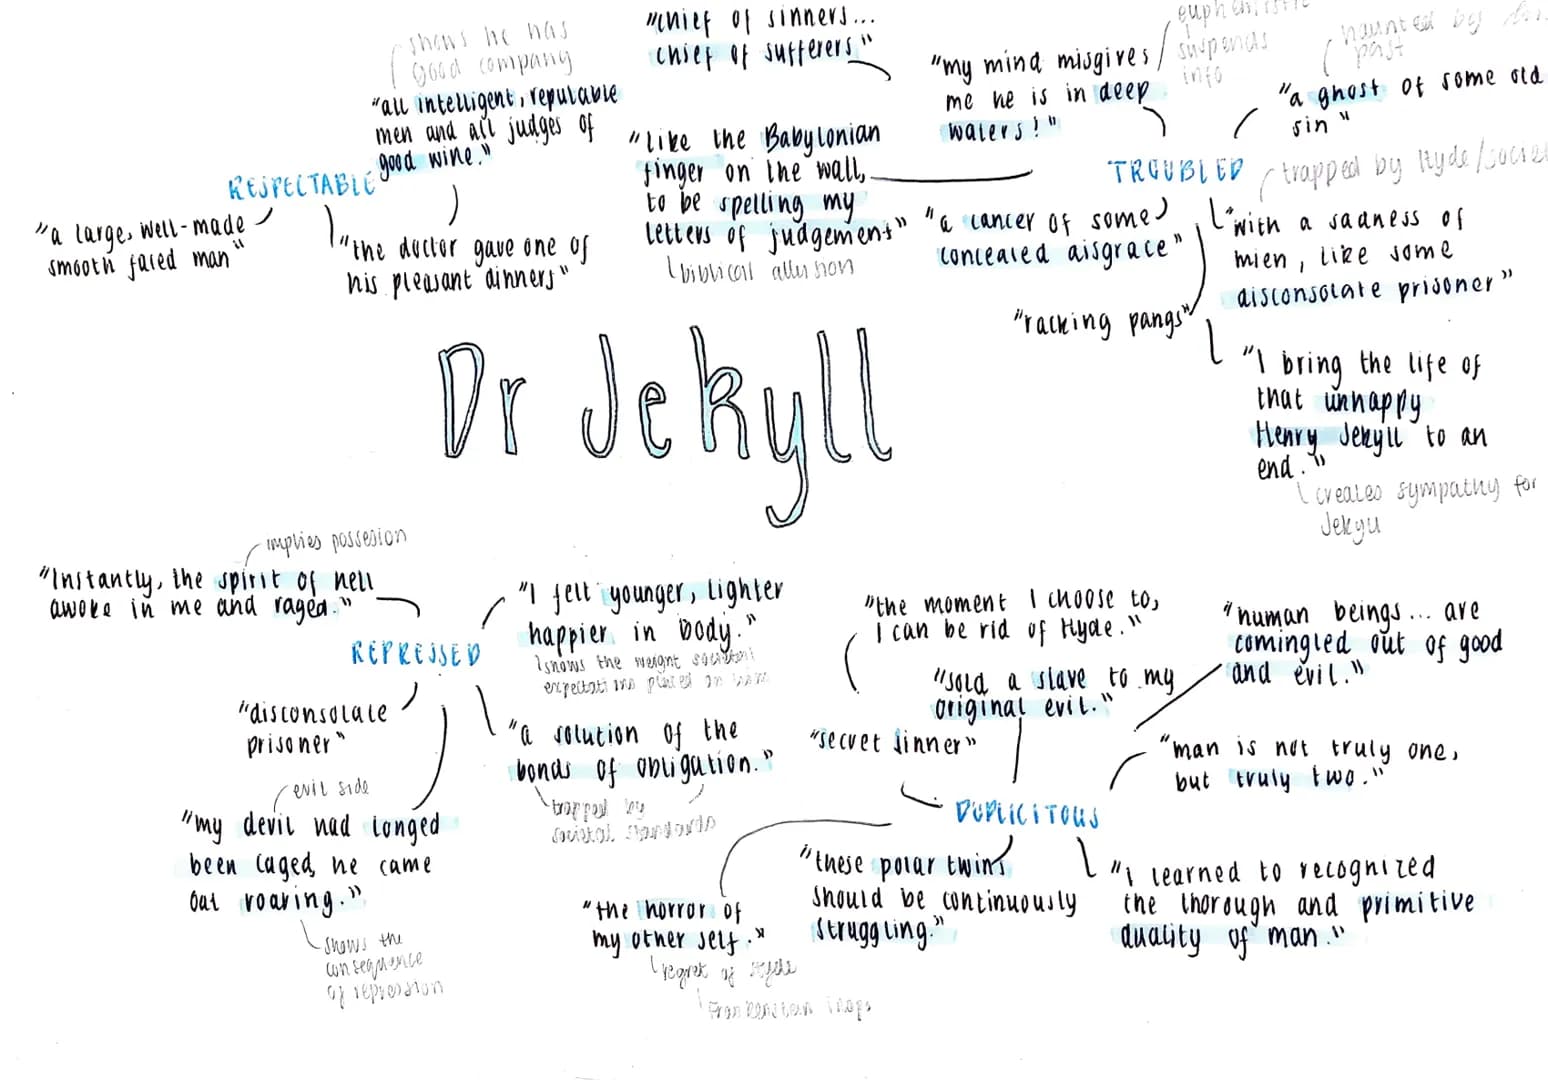 shows he has
good company
"all intelligent, reputable
men and all judges of
good wine."
RESPECTABLE
"a large, well-made
smooth faced man"
"the doctor gave one of
his pleasant dinners"
"chief of sinners...
chief of sufferers"
"like the Babylonian
finger on the wall,
to be spelling my
letters of judgement"
biblical allusion
"my mind misgives
me he is in deep
waters!"
suspends
info
haunted by
past
"a ghost of some old
sin"
TROUBLED
trapped by Hyde/
"a cancer of some
concealed disgrace"
"with a sadness of
mien, like some
disconsolate prisoner"
"racking pangs"
"I bring the life of
that unhappy
Henry Jekyll to an
end."
creates sympathy for
Jekyll
Dr Jekyll
implies possesion
"Instantly, the spirit of hell
awoke in me and raged."
REPRESSED
"I felt younger, lighter
happier in body."
shows the weight societal
expectations placed on him
"disconsolate
prisoner"
"a solution of the
bonds of obligation."
trapped by
societal standards
evil side
"my devil had longed
been caged, he came
out roaring."
shows the
consequence
of repression
"the moment I choose to,
I can be rid of Hyde."
"sold a slave to my
original evil."
"human beings... are
comingled out of good
and evil."
"secret sinner"
"man is not truly one,
but truly two."
DUPLICITOUS
"these polar twins
should be continuously
struggling."
"I learned to recognized
the thorough and primitive
duality of man."
"the horror of
my other self."
regret of Hyde